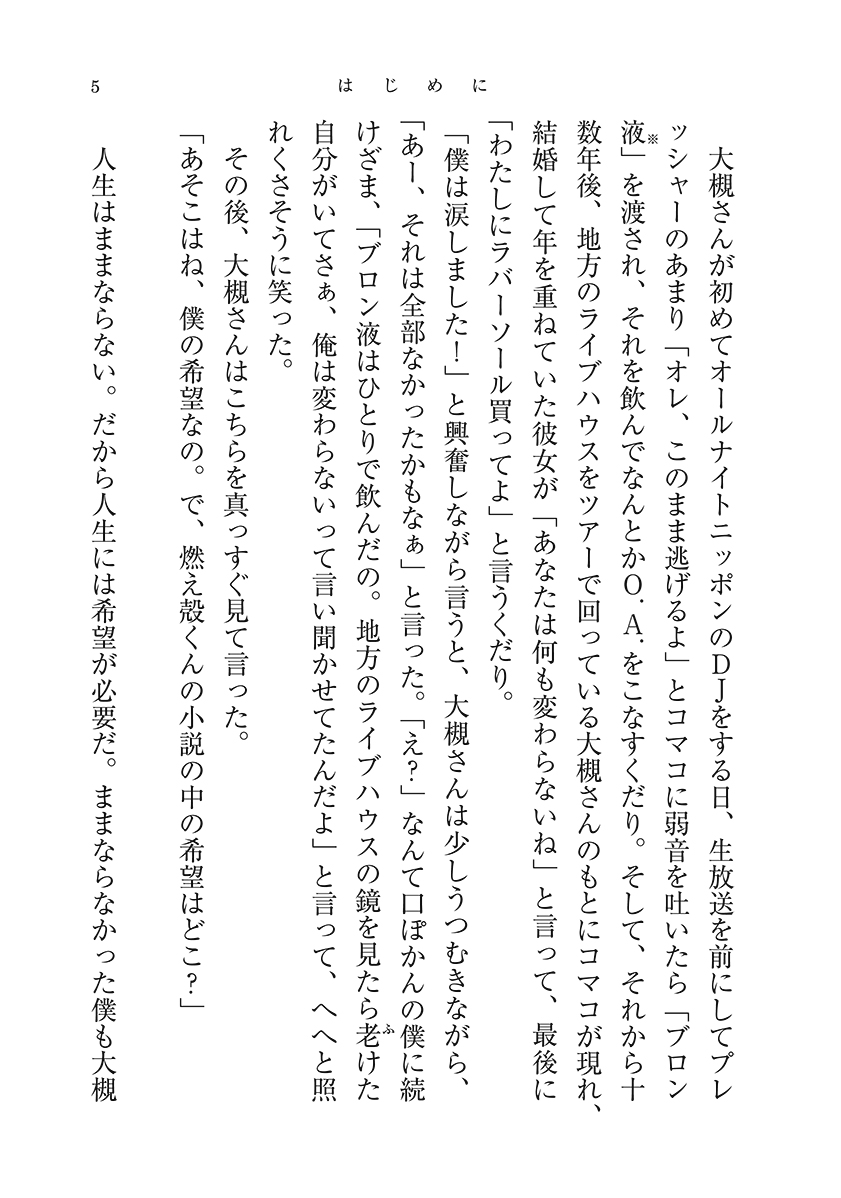 5
はじめに
　大槻さんが初めてオールナイトニッポンのDJをする日、生放送を前にしてプレ
ッシャーのあまり「オレ、このまま逃げるよ」とコマコに弱音を吐いたら「ブロン
液※」を渡され、それを飲んでなんとかO.A.をこなすくだり。そして、それから十
数年後、地方のライブハウスをツアーで回っている大槻さんのもとにコマコが現れ、
結婚して年を重ねていた彼女が「あなたは何も変わらないね」と言って、最後に
「わたしにラバーソール買ってよ」と言うくだり。
「僕は涙しました！」と興奮しながら言うと、大槻さんは少しうつむきながら、
「あー、それは全部なかったかもなぁ」と言った。「え？」なんて口ぽかんの僕に続
けざま、「ブロン液はひとりで飲んだの。地方のライブハウスの鏡を見たら老ふけた
自分がいてさぁ、俺は変わらないって言い聞かせてたんだよ」と言って、へへと照
れくさそうに笑った。
　その後、大槻さんはこちらを真っすぐ見て言った。
「あそこはね、僕の希望なの。で、燃え殻くんの小説の中の希望はどこ？」
　人生はままならない。だから人生には希望が必要だ。ままならなかった僕も大槻